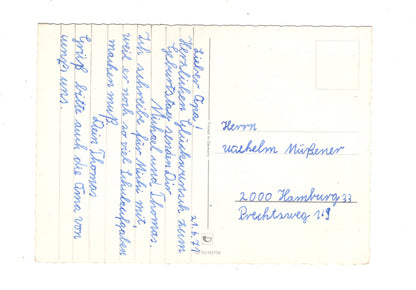 21.6.71
Lieber Opa!
Herzlichen Glückwunsch zum
Geburtstag senden Dir
Michael und Thomas.
Ich schreibe für Michi mit,
weil er noch so viel Schulaufgaben
machen muß.
Dein Thomas
Grüß bitte auch die Oma von
uns.
Herrn
Wilhelm Müßener
2000 Hamburg 33
Brechtsweg